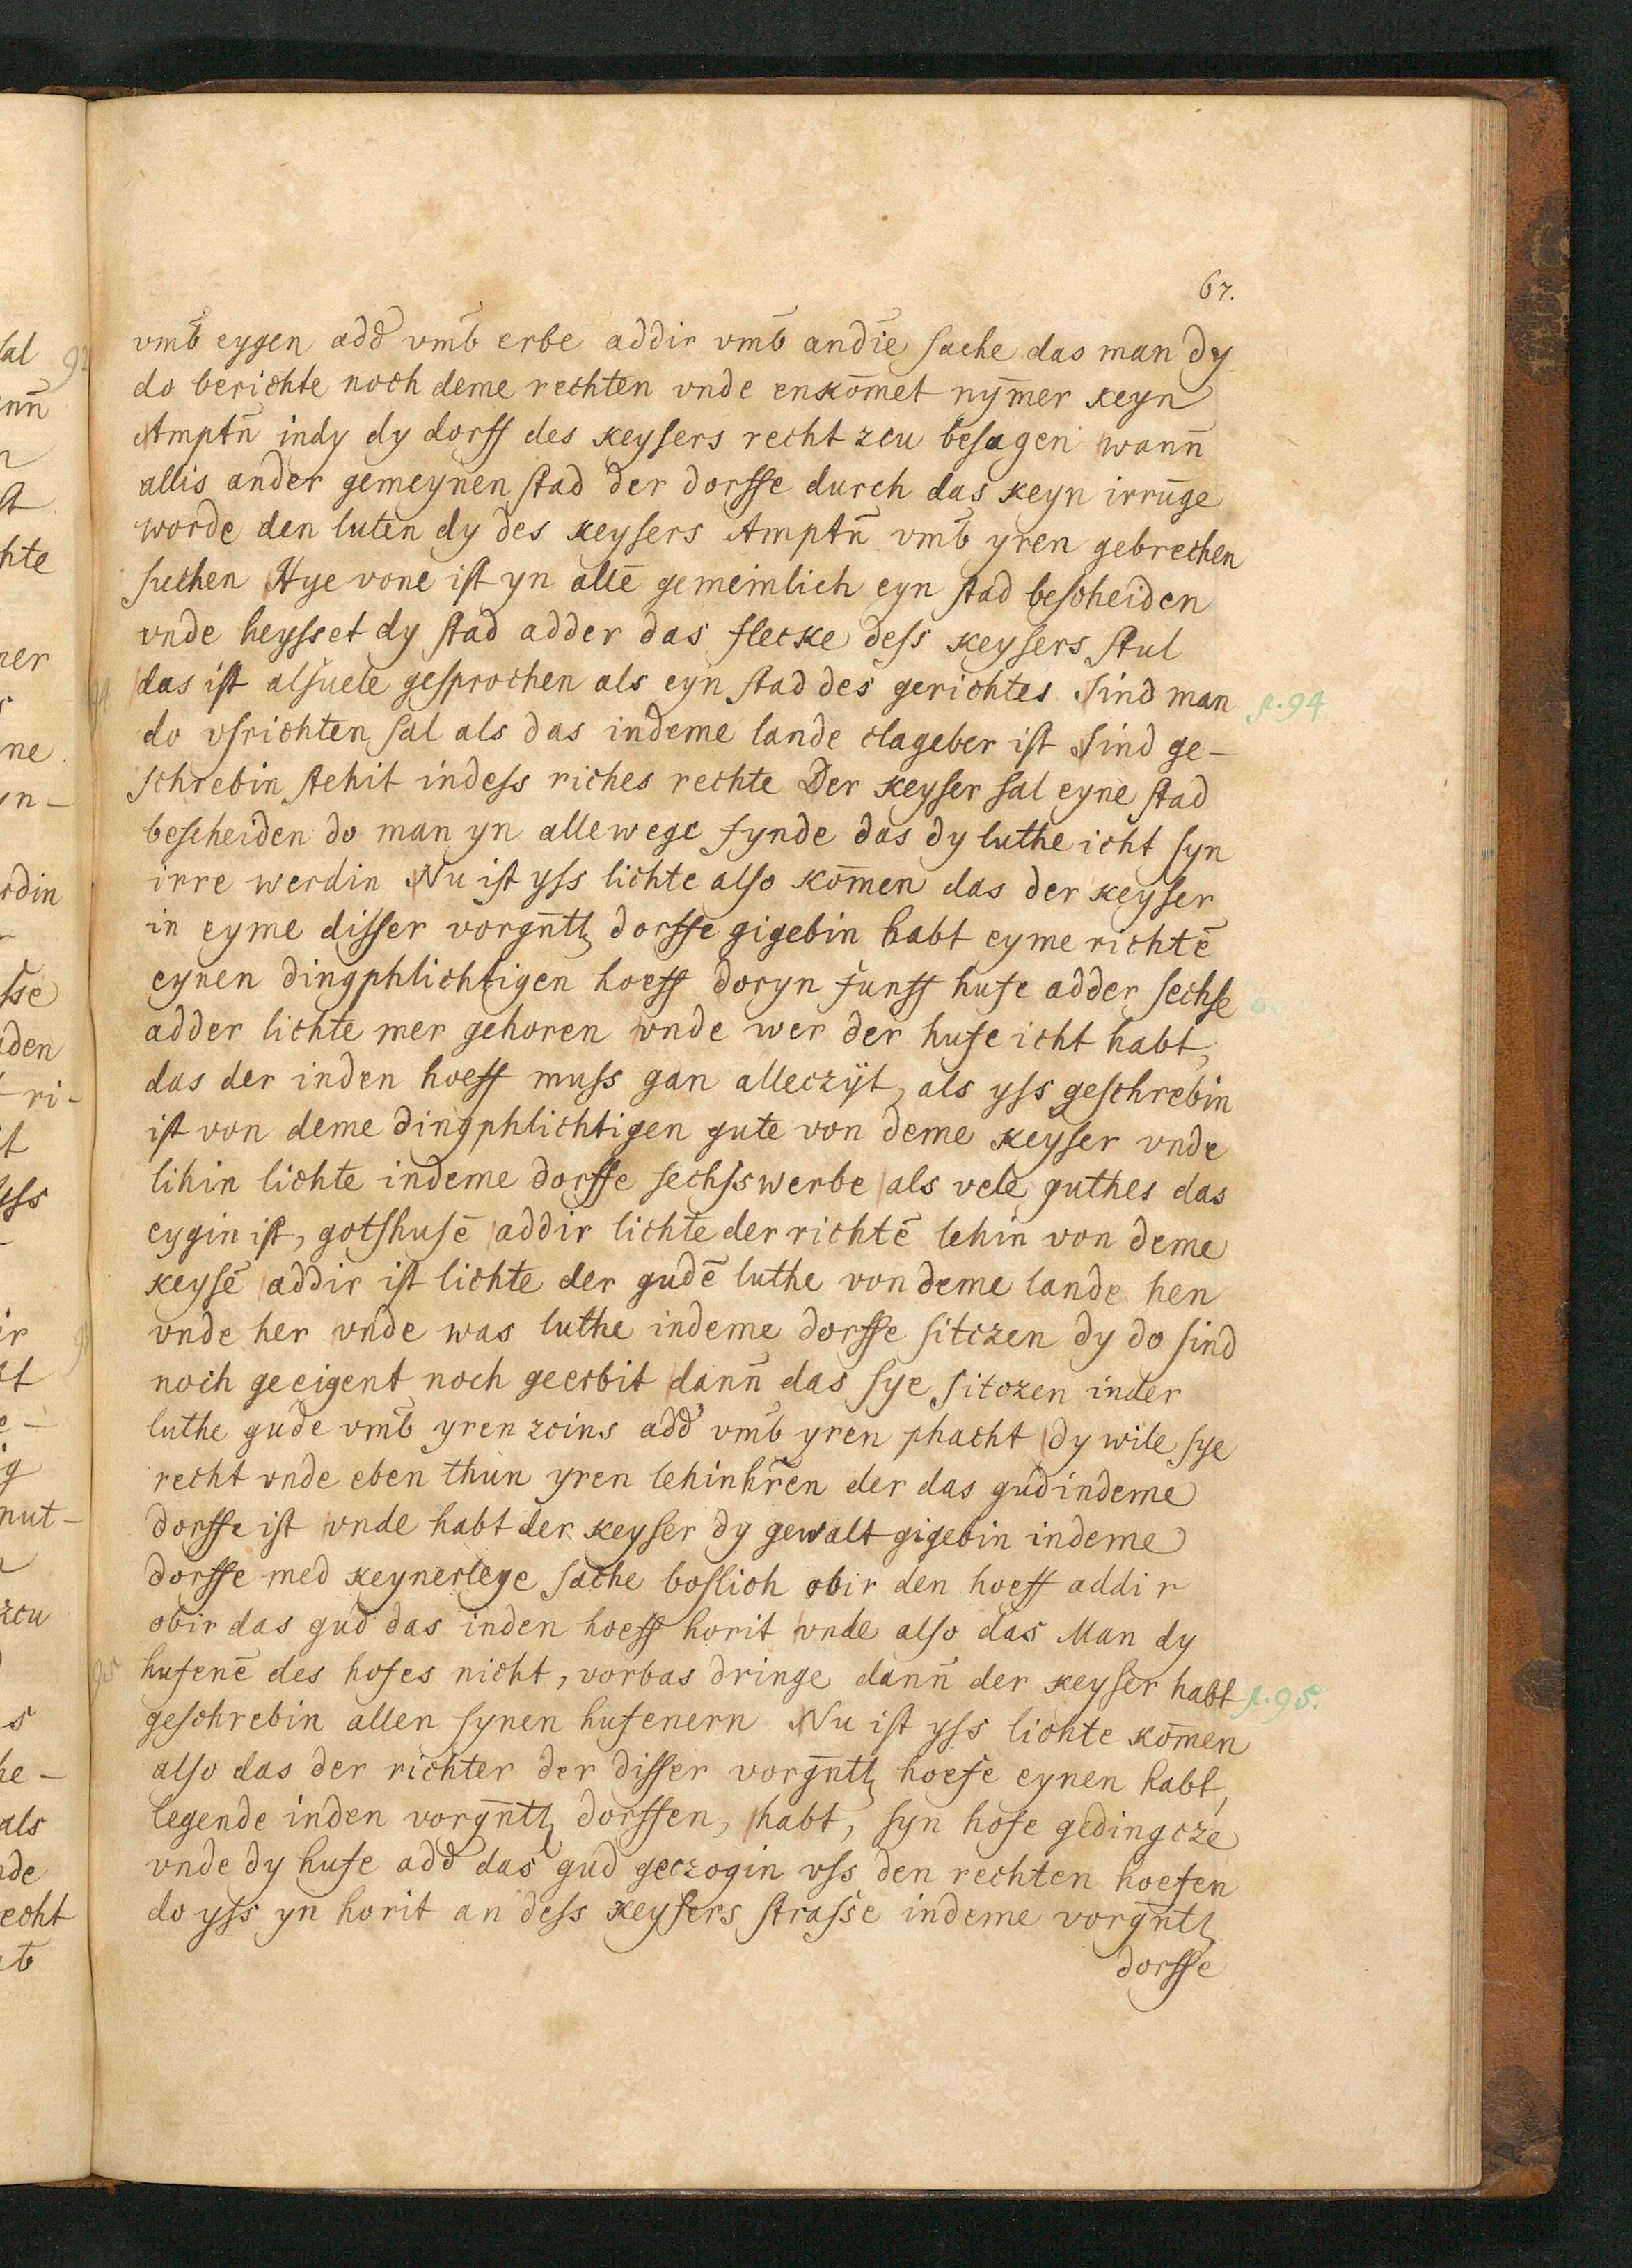 67.
vmb̄ eygen add̉ vmb̄ erbe addir vmb̄ andīe sache das man dy
do berichte noch deme rechten vnde enkōmet nȳmer keyn
Amptn̄ indy dy dorff des keysers recht zcu besagen wann̄
allis ander gemeynen stad der dorffe durch das keyn irrūge
worde den luten dy des keysers Amptn̄ vmb̄ yren gebrechen
suchen Hye vone ist yn allē gemeinlich eyn stad bescheiden
vnde heysset dy stad adder das flecke dess keysers stul
das ist alsuele gesprochen als eyn stad des gerichtes Sind man
p. 94
do vfrichten sal als das indeme lande clageber ist Sind ge-
schrebin stehit indess riches rechte Der keyser sal eyne stad
bescheiden do man yn allewege fynde das dy luthe icht syn
irre werdin Nu ist yss lichte also kōmen das der keyser
in eyme disser vorgn̄tꝫ dorffe gigebin habt eyme richtē
eynen dingphlichtigen hoeff doryn funff hufe adder sechse
adder lichte mer gehoren vnde wer der hufe icht habt,
das der inden hoeff muss gan alleczÿt, als yss geschrebin
ist von deme dingphlichtigen gute von deme keyser vnde
lihin lichte indeme dorffe sechsswerbe als vele guthes das
eygin ist, gotshusē addir lichte der richtē lehin von deme
keysē addir ist lichte der gudē luthe von deme lande hen
vnde her vnde was luthe indeme dorffe sitczen dy do sind
noch geeigent noch geerbit dann̄ das sye sitczen inder
luthe gude vmb̄ yren zcins add̉ vmb̄ yren phacht dy wile sye
recht vnde eben thun yren lehinhr̄en der das gud indeme
dorffe ist vnde habt der keyser dy gewalt gigebin indeme
dorffe med keynerleye sache boslich obir den hoeff addir
obir das gud das inden hoeff horit vnde also das Man dy
hufenē des hofes nicht, vorbas dringe dann̄ der keyser habt
p. 95.
geschrebin allen synen hufenern Nu ist yss lichte kōmen
also das der richter der disser vorgn̄tꝫ hoefe eynen habt,
legende inden vorgn̄tꝫ dorffen, habt, syn hofe gedingcze
vnde dy hufe add̉ das gud geczogin vss den rechten hoefen
do yss yn horit an dess keysers strasse indeme vorgn̄tꝫ
dorffe